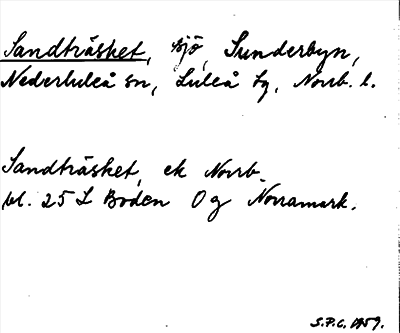 Sandträsket, sjö, Sunderbyn,
Nederluleå sn, Luleå tg, Norrb. l.
Sandträsket, ek Norrb.
bl. 25 L Boden O g Norramark.
S.P.C. 1959.